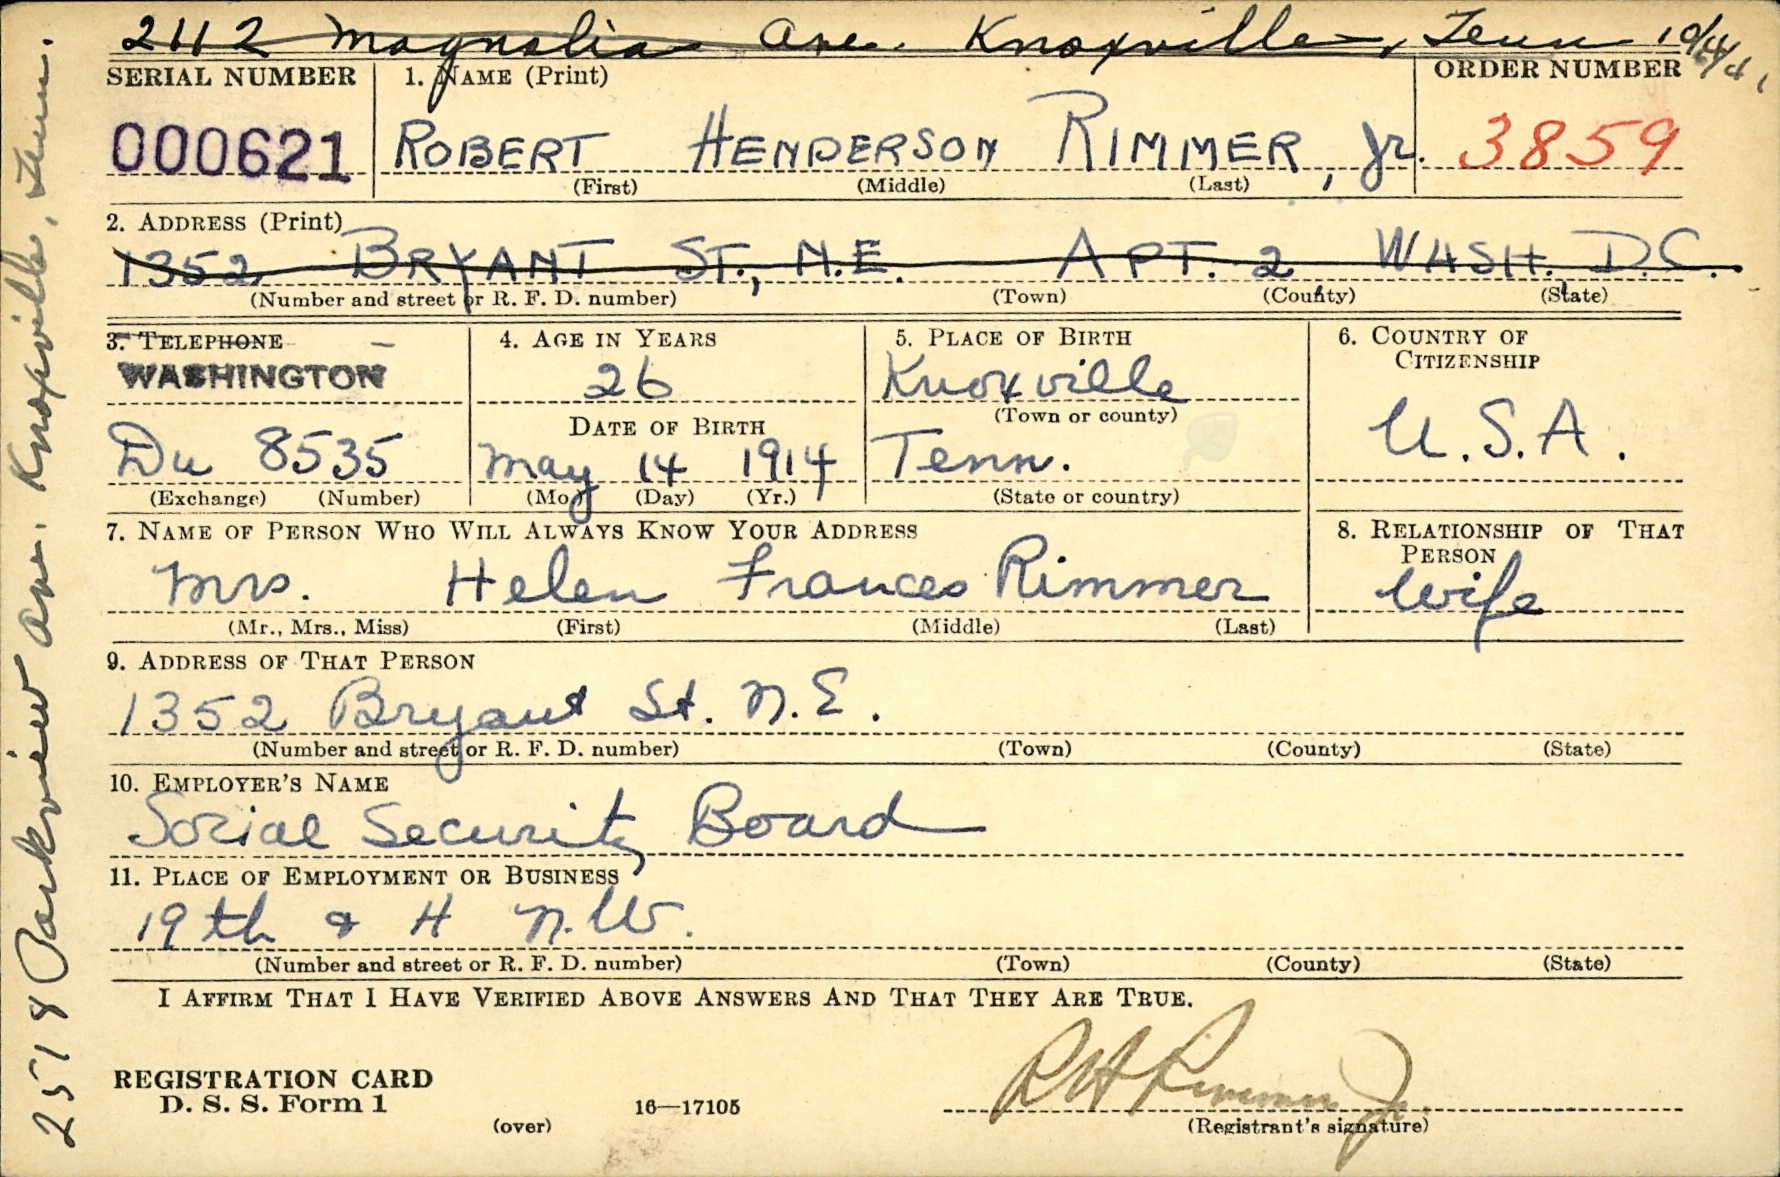 2112 Magnolia Ave. Knoxville, Tenn
SERIAL NUMBER
1. NAME (Print)
ORDER NUMBER
000621
ROBERT HENDERSON RIMMER, Jr.
3859
(First) (Middle) (Last)
2. ADDRESS (Print)
1352 BRYANT ST., N.E. APT. 2 WASH. D.C.
(Number and street or R. F. D. number) (Town) (County) (State)
3. TELEPHONE
WASHINGTON
Du 8535
(Exchange) (Number)
4. AGE IN YEARS
26
DATE OF BIRTH
May 14 1914
(Mo.) (Day) (Yr.)
5. PLACE OF BIRTH
Knoxville
(Town or county)
Tenn.
(State or country)
6. COUNTRY OF
CITIZENSHIP
U.S.A.
7. NAME OF PERSON WHO WILL ALWAYS KNOW YOUR ADDRESS
Mrs. Helen Frances Rimmer
(Mr., Mrs., Miss) (First) (Middle) (Last)
8. RELATIONSHIP OF THAT
PERSON
Wife
9. ADDRESS OF THAT PERSON
1352 Bryant St. N.E.
(Number and street or R. F. D. number) (Town) (County) (State)
10. EMPLOYER'S NAME
Social Security Board
11. PLACE OF EMPLOYMENT OR BUSINESS
19th & H N.W.
(Number and street or R. F. D. number) (Town) (County) (State)
I AFFIRM THAT I HAVE VERIFIED ABOVE ANSWERS AND THAT THEY ARE TRUE.
REGISTRATION CARD
D. S. S. Form 1
(over)
16—17105
R H Rimmer Jr.
(Registrant's signature)
2518 Parkview Ave. Knoxville, Tenn.